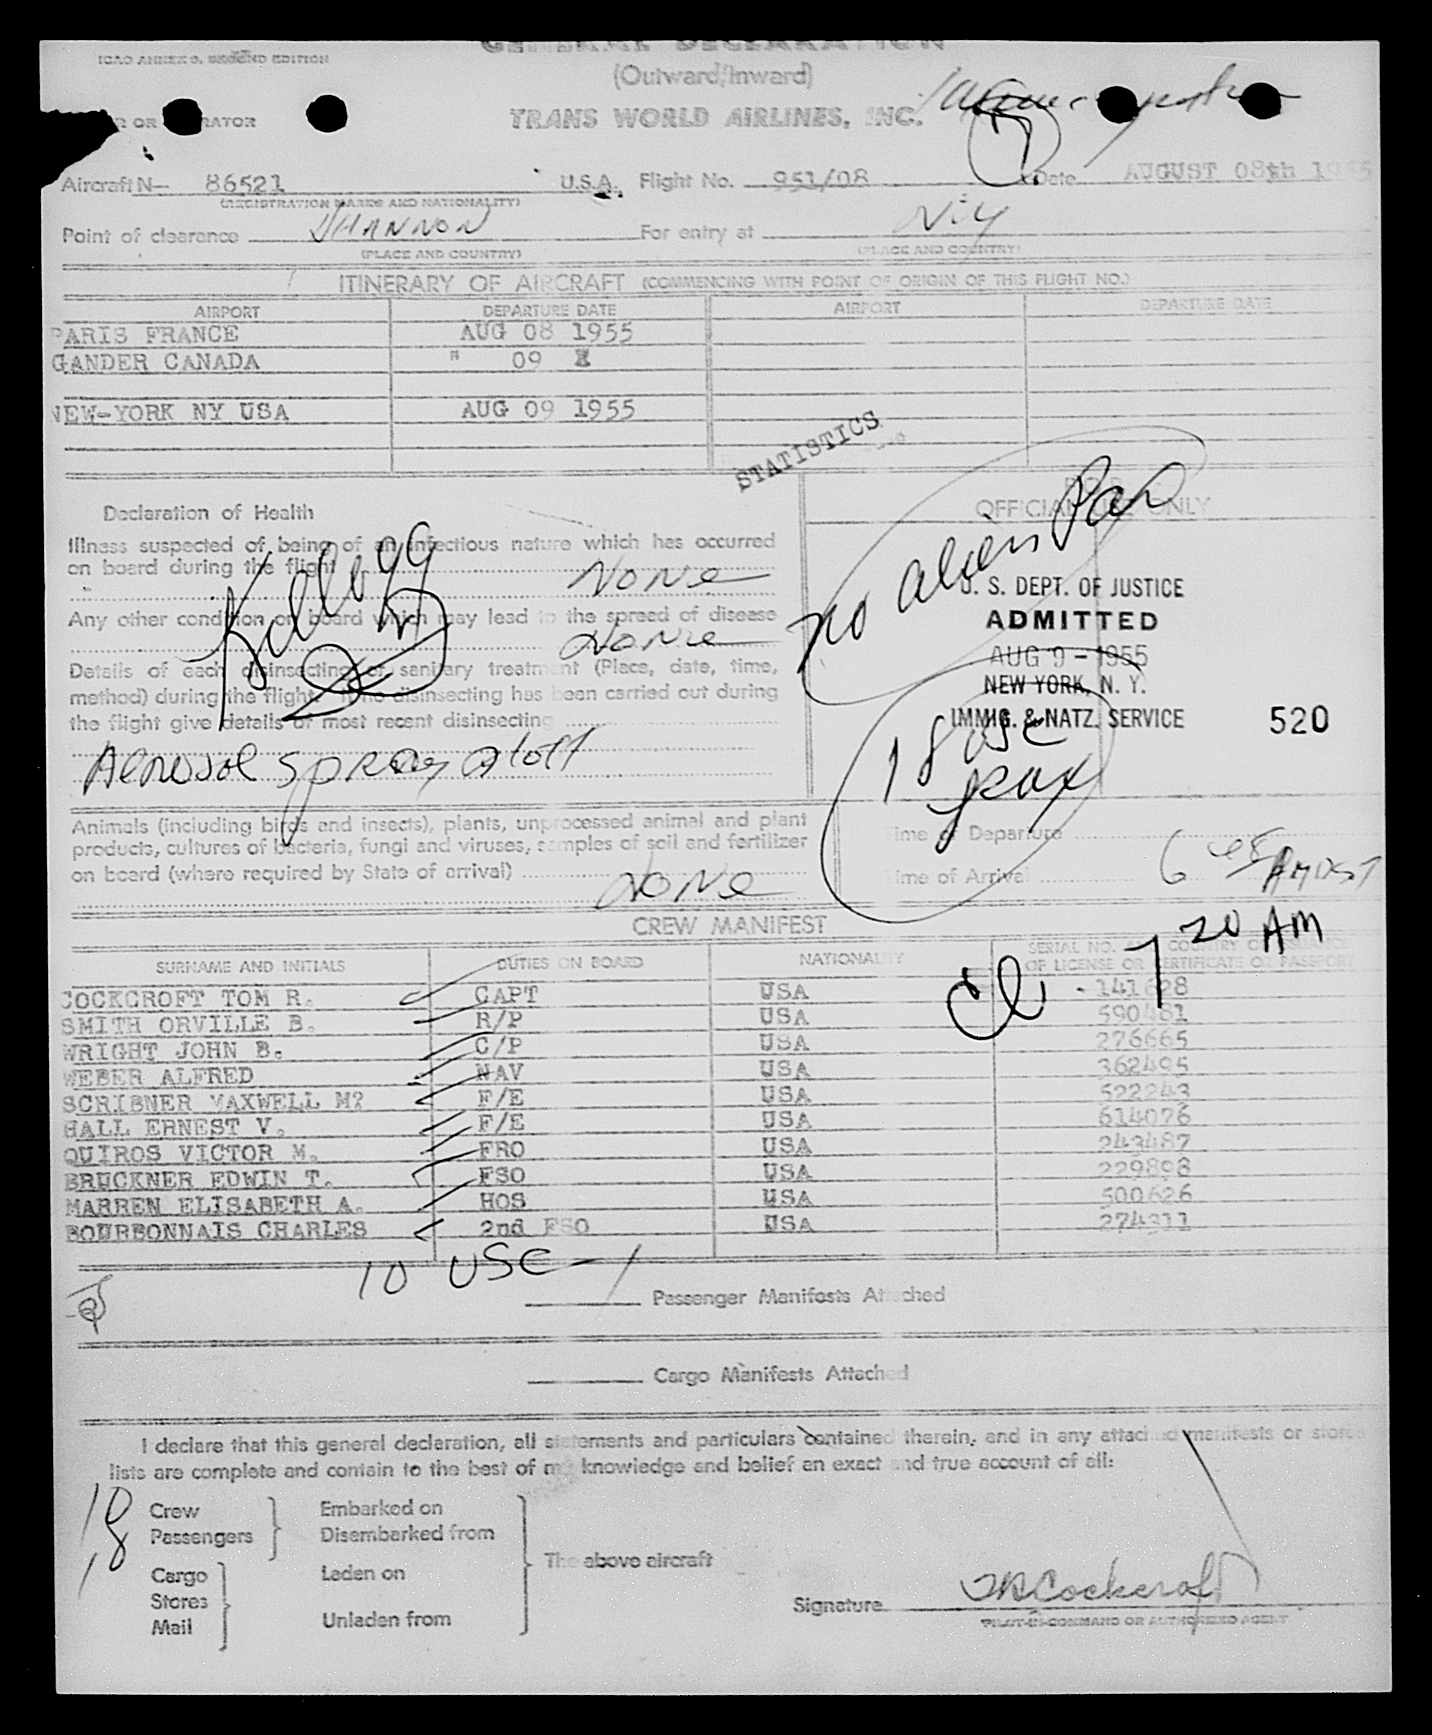 GENERAL DECLARATION
ICAO ANNEX 9, SECOND EDITION
(Outward/Inward)
OR OPERATOR
TRANS WORLD AIRLINES, INC.
Aircraft N— 86521 U.S.A. Flight No. 951/08 Date AUGUST 08th 1955
(REGISTRATION MARKS AND NATIONALITY)
Point of clearance SHANNON For entry at N.Y
(PLACE AND COUNTRY) (PLACE AND COUNTRY)
ITINERARY OF AIRCRAFT (COMMENCING WITH POINT OF ORIGIN OF THIS FLIGHT NO.)
AIRPORT DEPARTURE DATE AIRPORT DEPARTURE DATE
PARIS FRANCE AUG 08 1955
GANDER CANADA " 09
NEW-YORK NY USA AUG 09 1955
STATISTICS
Declaration of Health
OFFICIAL USE ONLY
Illness suspected of being of an infectious nature which has occurred
on board during the flight
None
Any other condition on board which may lead to the spread of disease
None
Kellogg
Details of each disinsecting or sanitary treatment (Place, date, time,
method) during the flight. If no disinsecting has been carried out during
the flight give details of most recent disinsecting
Aerosol spray aloft
no alien Pax
U. S. DEPT. OF JUSTICE
ADMITTED
AUG 9 - 1955
NEW YORK, N. Y.
IMMIG. & NATZ. SERVICE 520
18 USC
pax
Animals (including birds and insects), plants, unprocessed animal and plant
products, cultures of bacteria, fungi and viruses, samples of soil and fertilizer
on board (where required by State of arrival)
None
Time of Departure
Time of Arrival 6 48 AM DST
7 20 AM
CREW MANIFEST
SURNAME AND INITIALS DUTIES ON BOARD NATIONALITY SERIAL NO. COUNTRY OF ISSUANCE
OF LICENSE OR CERTIFICATE OR PASSPORT
COCKCROFT TOM R. CAPT USA 141628
SMITH ORVILLE B. R/P USA 590481
WRIGHT JOHN B. C/P USA 276665
WEBER ALFRED NAV USA 362495
SCRIBNER MAXWELL M? F/E USA 522243
HALL ERNEST V. F/E USA 614076
QUIROS VICTOR M. FRO USA 243487
BRUCKNER EDWIN T. FSO USA 229898
MARREN ELISABETH A. HOS USA 500626
BOURBONNAIS CHARLES 2nd FSO USA 274311
10 USC
Passenger Manifests Attached
Cargo Manifests Attached
I declare that this general declaration, all statements and particulars contained therein, and in any attached manifests or stores
lists are complete and contain to the best of my knowledge and belief an exact and true account of all:
10 Crew Embarked on
18 Passengers Disembarked from
The above aircraft
Cargo Laden on
Stores
Mail Unladen from
Signature TR Cockcroft
PILOT-IN-COMMAND OR AUTHORIZED AGENT